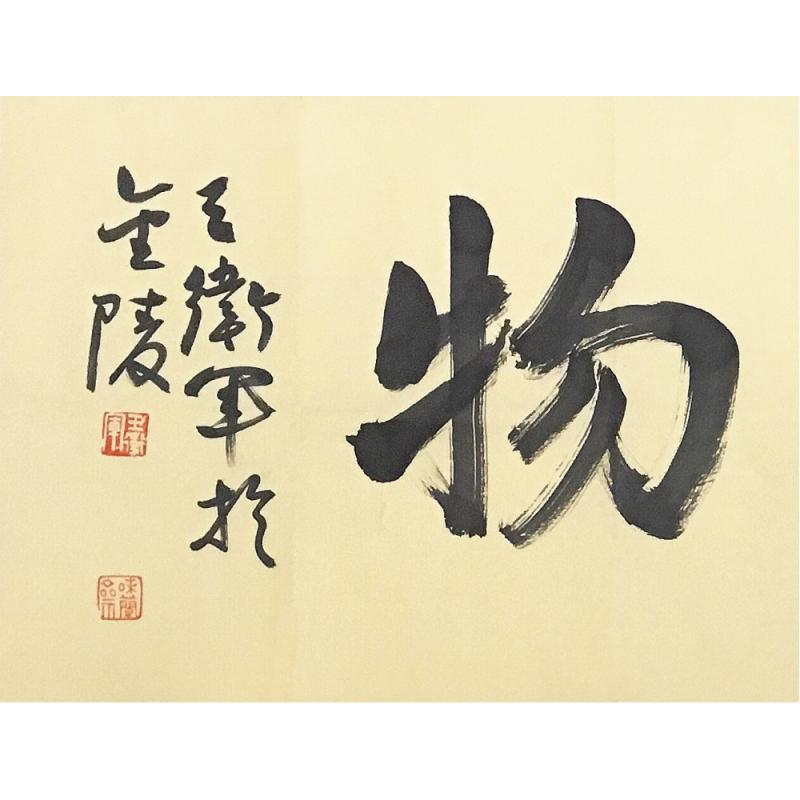 物
王衛军於
金陵